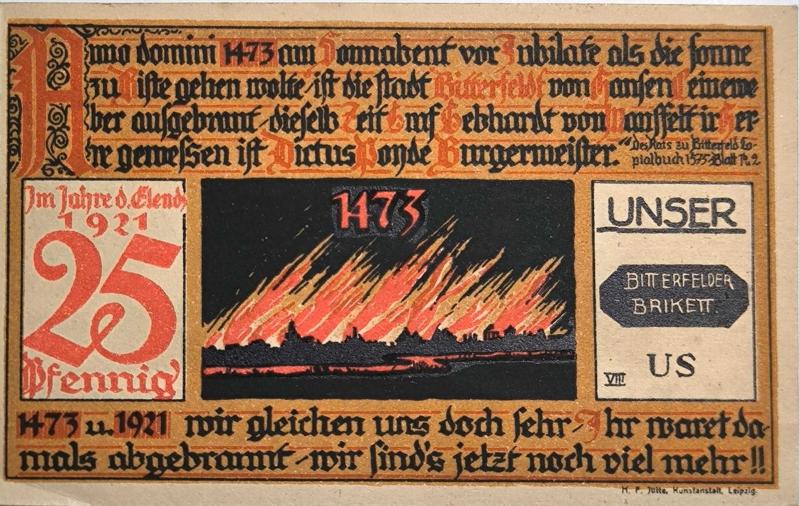 Anno domini 1473 am Sonnabent vor Jubilate als die sonne
zu Riste gehen wolte ist die stadt Bitterfeldt von Hansen Leinewe
ber ausgebrant dieselb Zeit Graf Gebhardt von Mansfelt ir Her-
re gewessen ist Dictus Ponde Burgermeister."
"Des Rats zu Bitterfeld Co-
pialbuch 1575 Blatt N. 2
Im Jahre d. Elends
1921
25
Pfennig
1473
UNSER
BITTERFELDER
BRIKETT.
US
VIII
1473 u. 1921 wir gleichen uns doch sehr - Ihr waret da-
mals abgebrannt - wir sind's jetzt noch viel mehr!!
H. F. Jütte, Kunstanstalt, Leipzig.